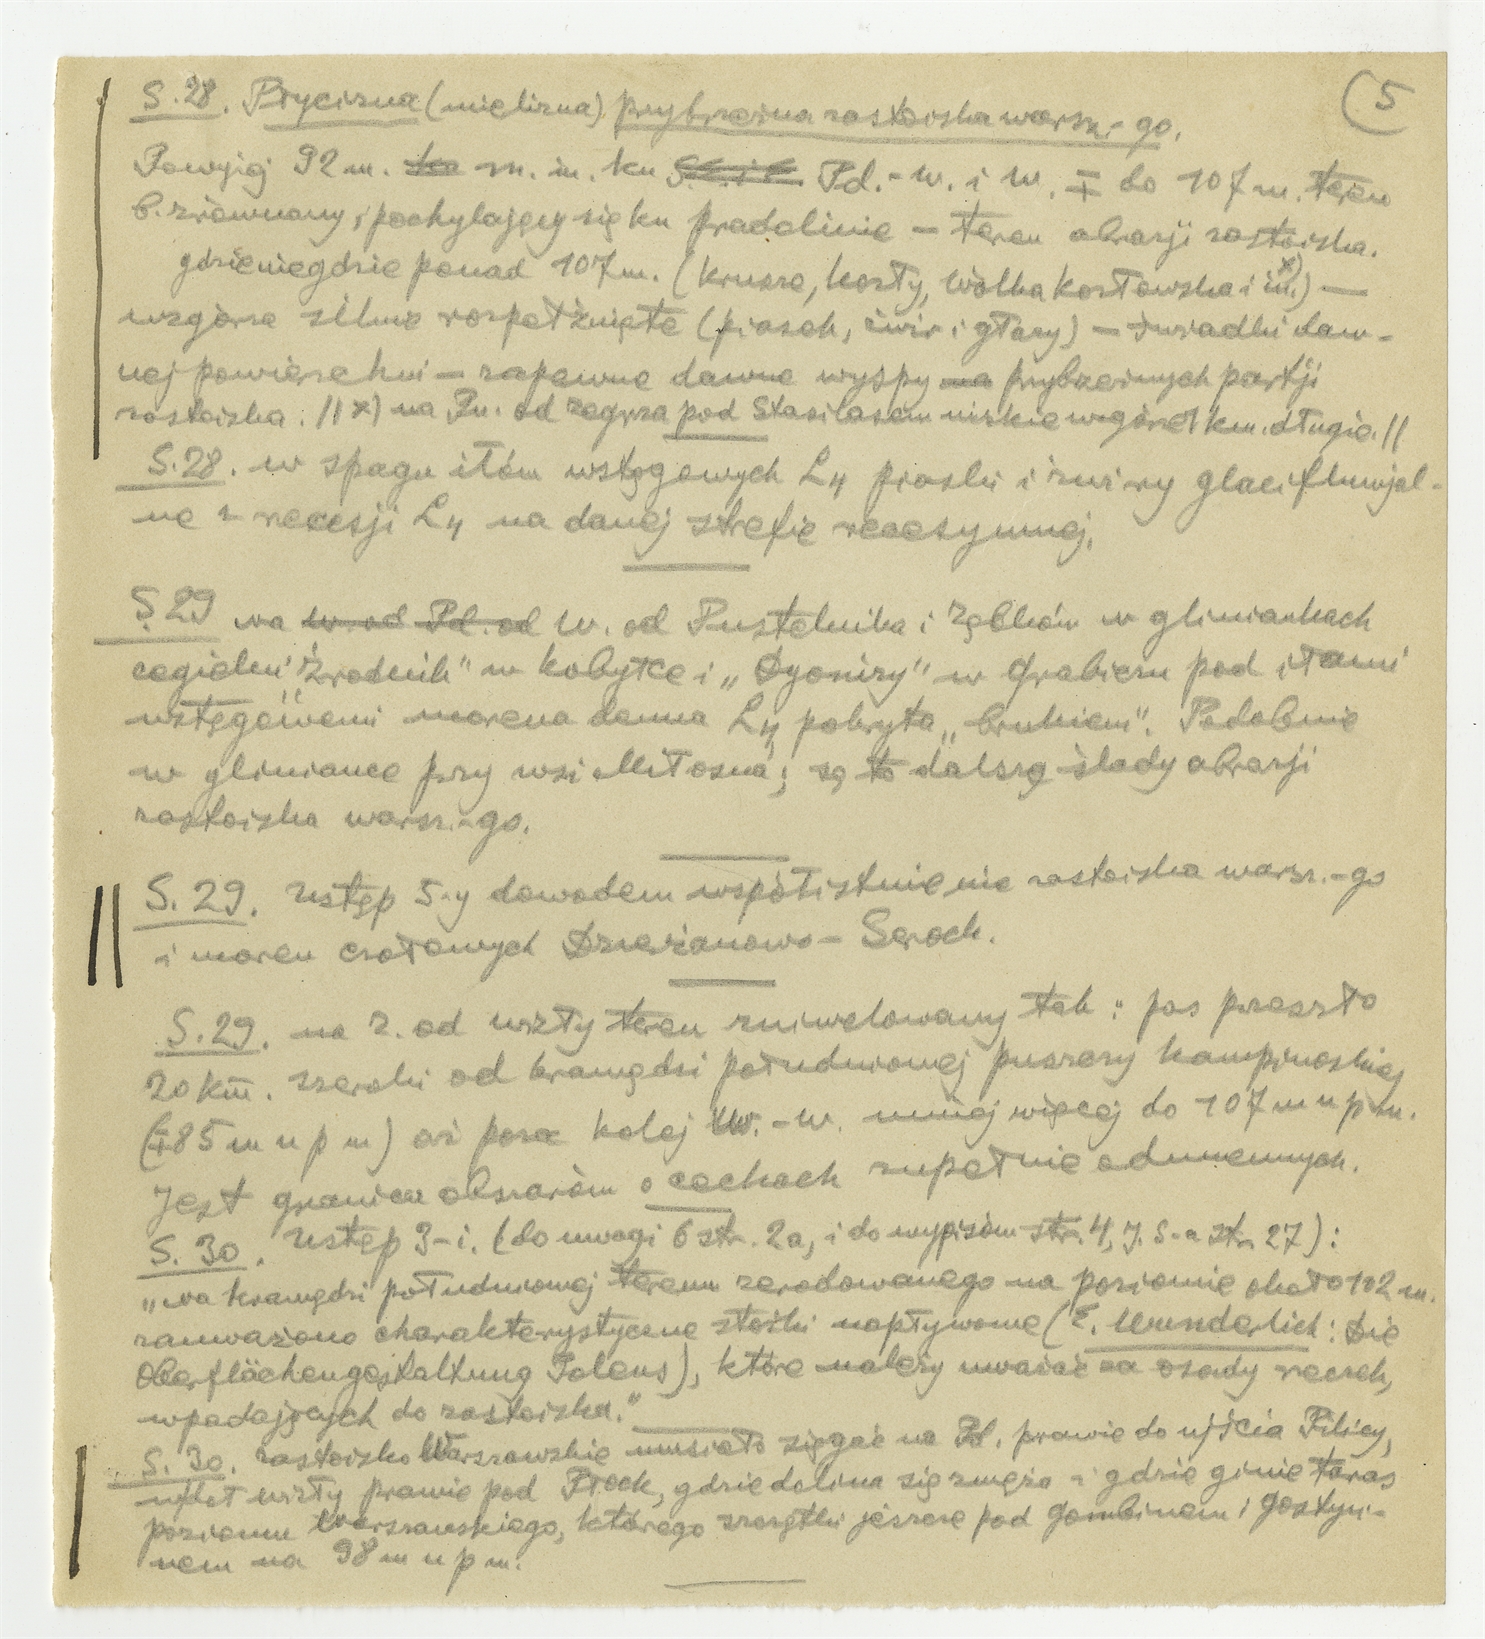 (5
S. 28. Płycizna (mielizna) przybrzeżna zastoiska warsz.-go.
Powyżej 92 m. m. in. ku Pd.-W. i W. ∓ do 107 m. teren
b. zrównany i pochylający się ku pradolinie — teren abrazji zastoiska.
gdzieniegdzie ponad 107 m. (Krusze, Kozły, Wólka Kozłowska i in.) x) —
wzgórza silnie rozpełźnięte (piasek, żwir i głazy) — świadki daw-
nej powierzchni — zapewne dawne wyspy przybrzeżnych partji
zastoiska. // x) na Pn. od Zegrza pod Stasilasem niskie wzgórze 1 km. długie. //
S. 28. w spągu iłów wstęgowych L4 piaski i żwiry glacifluwjal-
ne z recesji L4 na danej strefie recesyjnej.
S. 29 na W. od Pustelnika i Ząbków w gliniankach
cegielni "Źrodnik" w Kobyłce i „Dyonizy" w Grabiczu pod iłami
wstęgowemi morena denna L4 pokryta „brukiem". Podobnie
w gliniance przy wsi Miłosna; są to dalszę ślady abrazji
zastoiska warsz.-go.
S. 29. Ustęp 5-y dowodem współistnienie zastoiska warsz.-go
i moren czołowych Dzierżanowo – Serock.
S. 29. na Z. od Wisły teren zniwelowany tak: pas przeszło
20 km. szeroki od krawędzi południowej puszczy Kampinoskiej
(∓85 m n p m) aż poza kolej W.-W. mniej więcej do 107 m n p m.
Jest granica obszarów o cechach zupełnie odmiennych.
S. 30. Ustęp 3-i. (do uwagi 6 str. 2a, i do wypisów str. 4, J. S-a str. 27):
„na krawędzi południowej terenu zerodowanego na poziomie około 102 m.
zauważono charakterystyczne stożki napływowe (E. Wunderlich: Die
Oberflächengestaltung Polens), które należy uważać za osady rzeczk,
wpadających do zastoiska."
S. 30. Zastoisko Warszawskie musiało sięgać na Pd. prawie do ujścia Pilicy,
wdół Wisły prawie pod Płock, gdzie dolina się zwęża i gdzie ginie taras
poziomu Warszawskiego, którego szczątki jeszcze pod Gombinem i Gostyni-
nem na 98 m n p m.